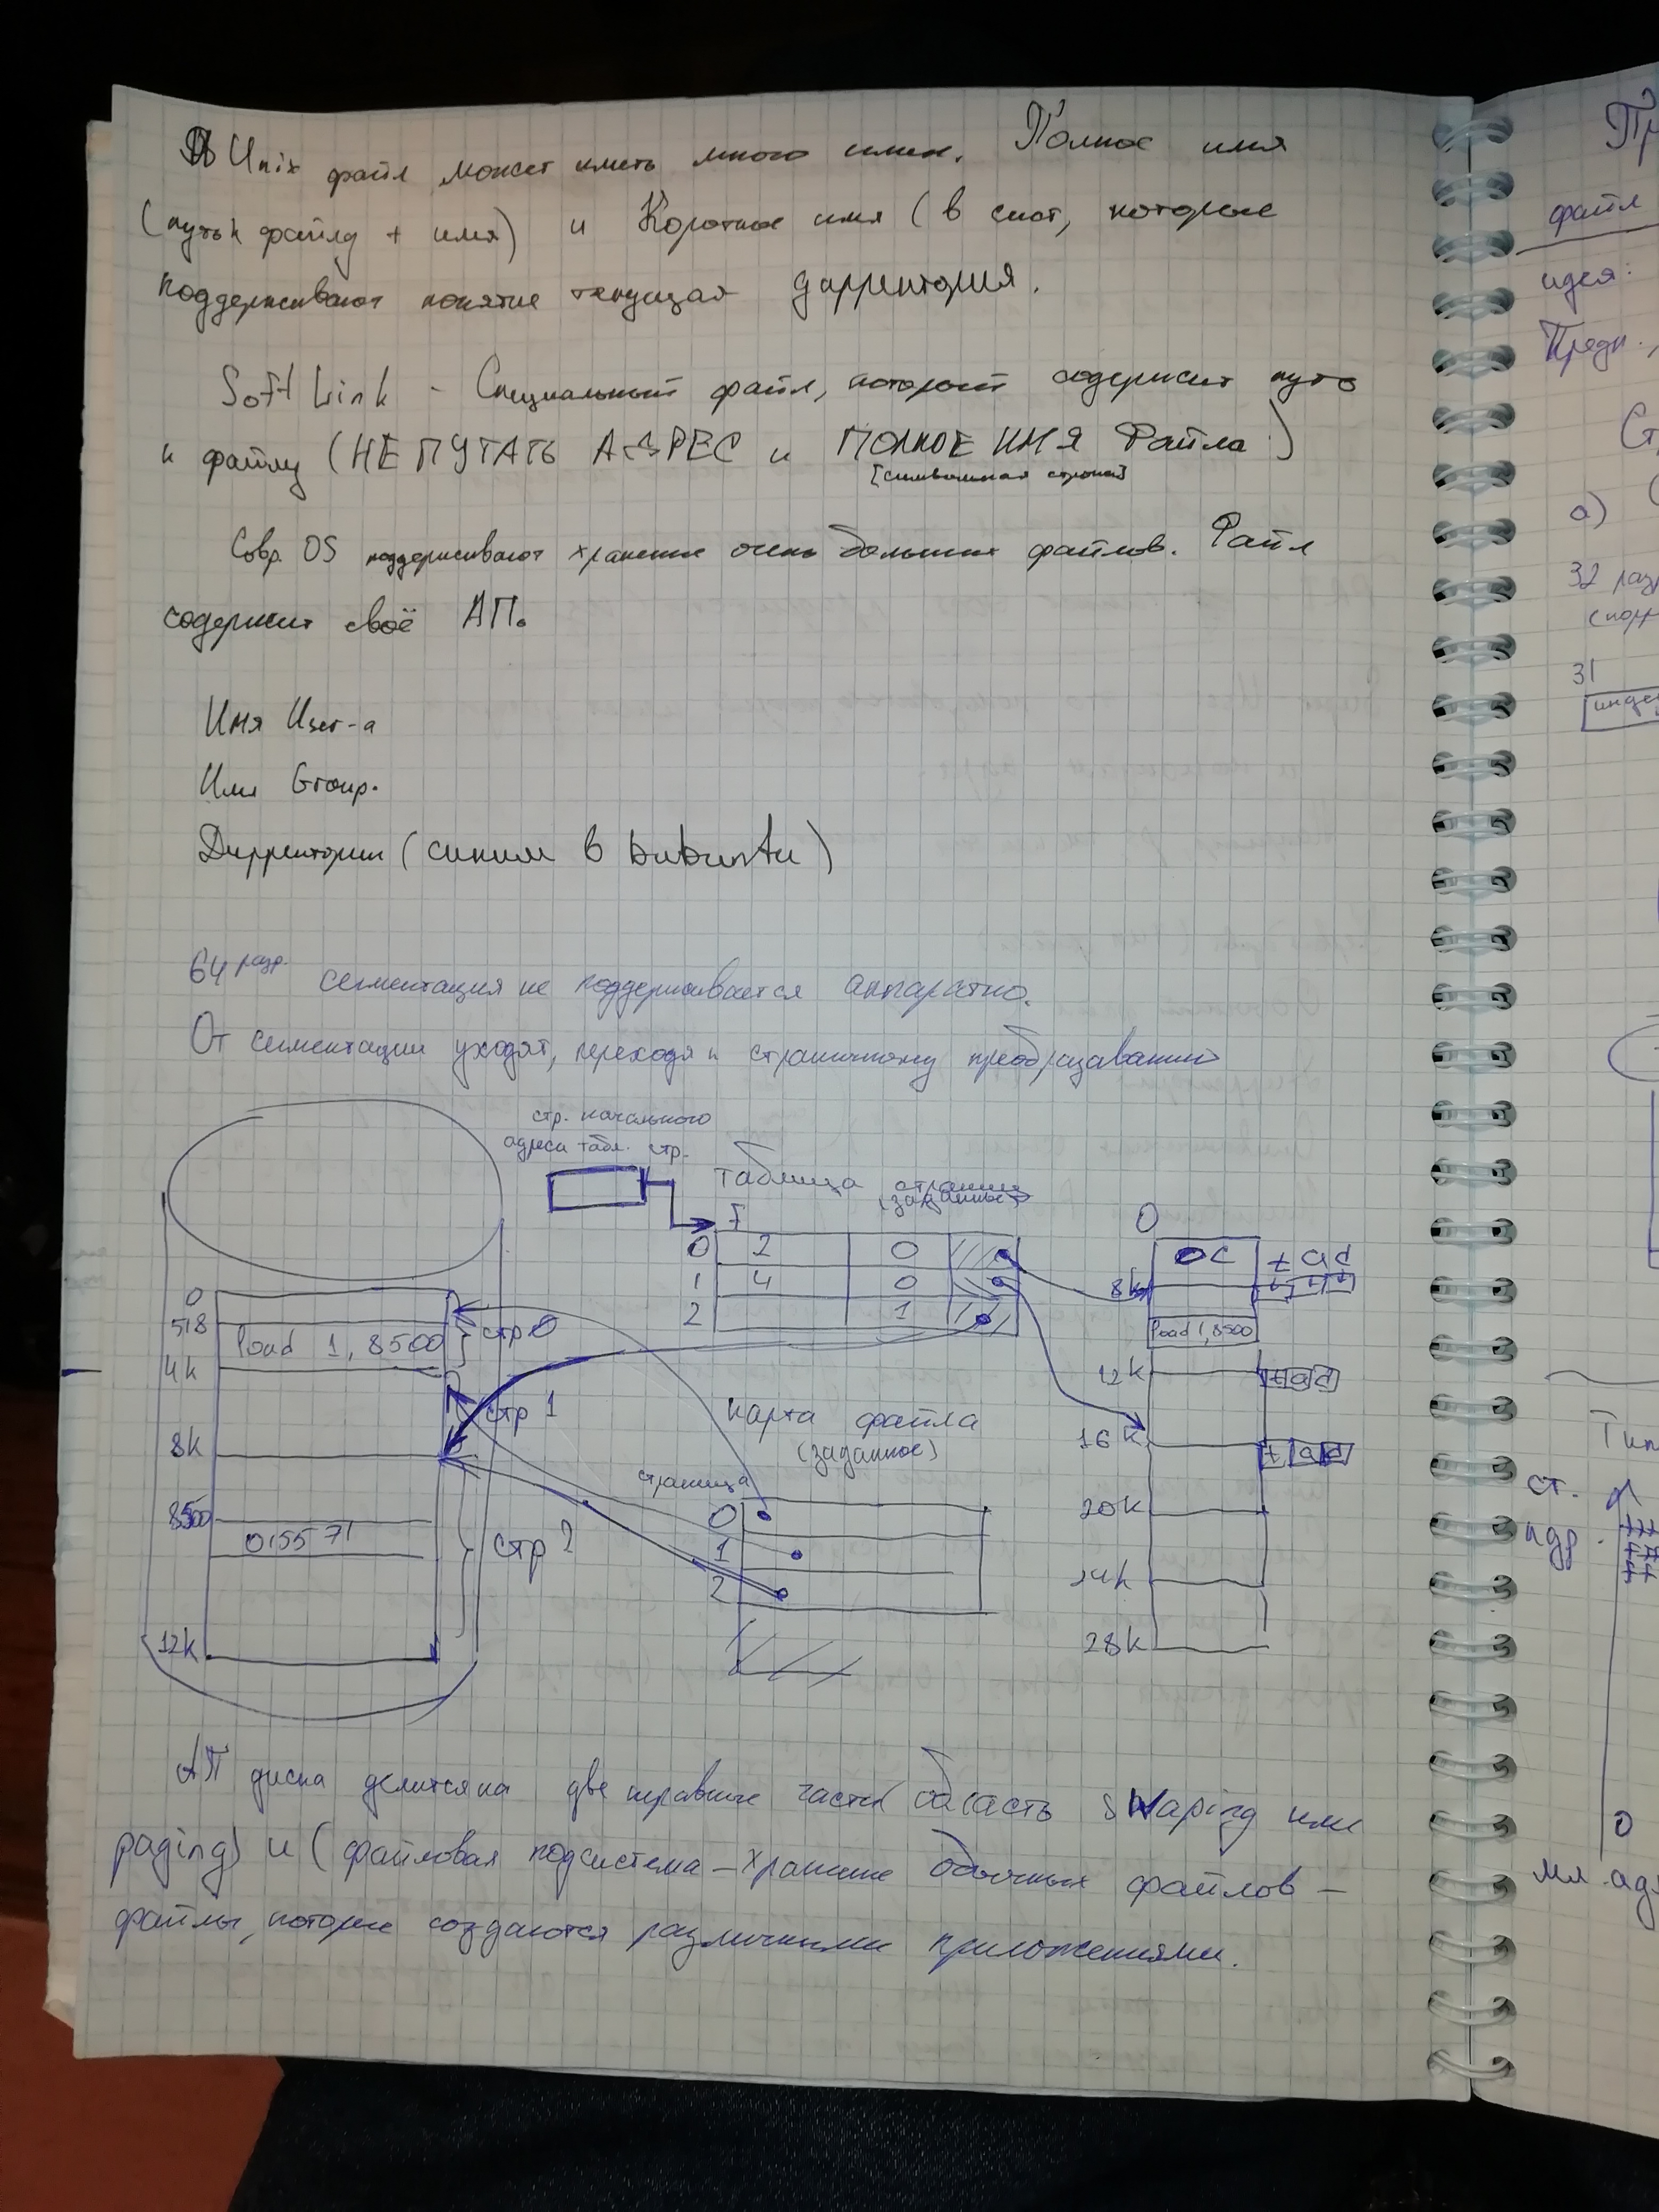 В Unix файл может иметь много имен. Полное имя
(путь к файлу + имя) и Короткое имя (в сист, которые
поддерживают понятие текущая дирректория.
Soft Link - Специальный файл, который содержит путь
к файлу (НЕ ПУТАТЬ АДРЕС и ПОЛНОЕ ИМЯ Файла)
[символьная строка]
Совр. OS поддерживают хранение очень больших файлов. Файл
содержит своё АП.
Имя User-a
Имя Group.
Дирректории (синим в kubuntu)
64 разр. сегментация не поддерживается аппаратно.
От сегментации уходят, переходя к страничному преобразованию
стр. начального
адреса табл. стр.
таблица страниц
(заданные)
0 2 0
1 4 0
2 1
0
ОС
8k
load 1, 8500
12k
16k
20k
24k
28k
0
518
load 1, 8500
стр 0
4k
стр 1
8k
8500
015571
стр 2
12k
карта файла
(заданное)
страница
0
1
2
АП диска делится на две неравные части (область swaping или
paging) и (файловая подсистема - хранение обычных файлов -
файлы, которые создаются различными приложениями.
Пр
файл
идея:
Предп.,
Ст
а)
32 разр
31
индек
Тип
ст.
адр.
0
мл. адр